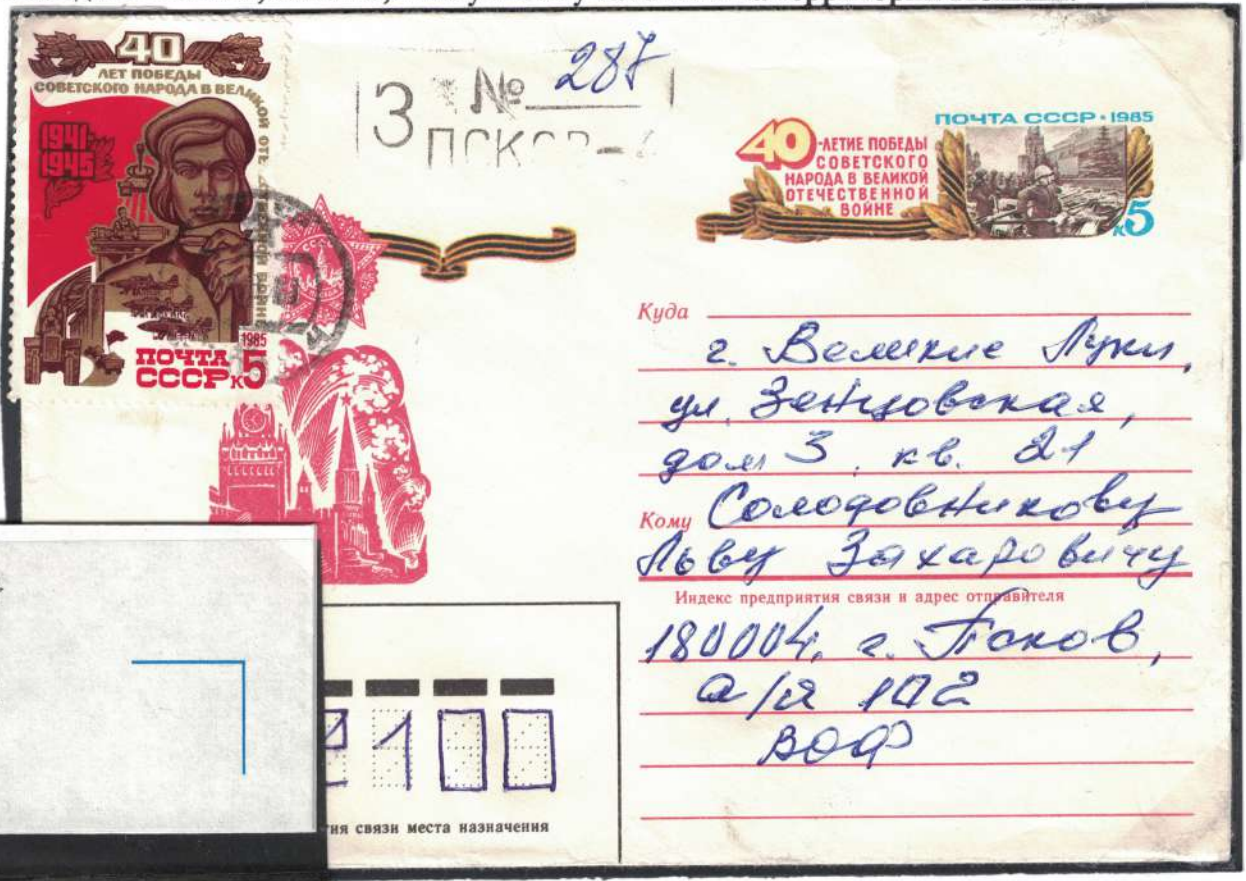 40
ЛЕТ ПОБЕДЫ
СОВЕТСКОГО НАРОДА В ВЕЛИКОЙ ОТЕЧЕСТВЕННОЙ ВОЙНЕ
1941
1945
1985
ПОЧТА
СССР к5
З № 287
ПСКОВ-
ПОЧТА СССР • 1985
40-ЛЕТИЕ ПОБЕДЫ
СОВЕТСКОГО
НАРОДА В ВЕЛИКОЙ
ОТЕЧЕСТВЕННОЙ
ВОЙНЕ
к5
Куда
г. Великие Луки,
ул. Зенцовская,
дом 3, кв. 21
Кому Солодовникову
Льву Захаровичу
Индекс предприятия связи и адрес отправителя
180004, г. Псков,
а/я 102
ВОФ
100
связи места назначения